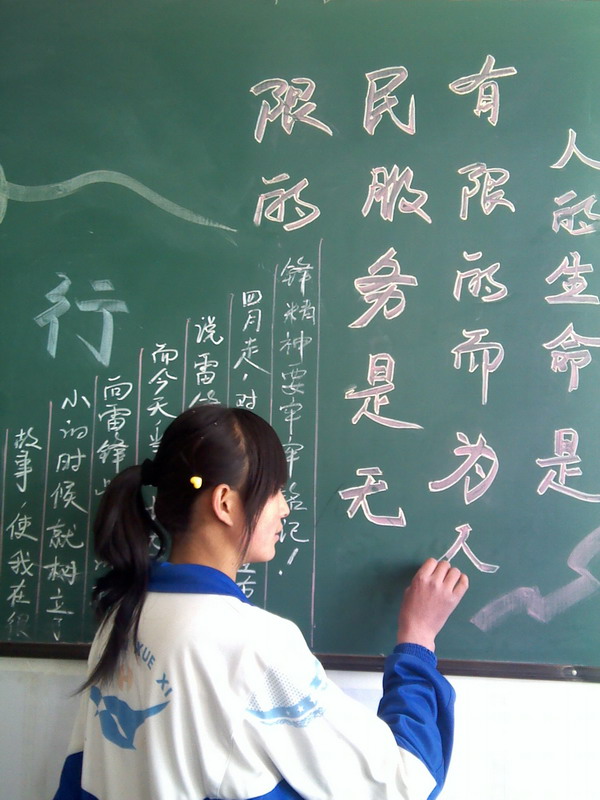 人的生命是
有限的而为人
民服务是无
限的
锋精神要牢牢铭记！
四月走，对
说雷
而今天当
向雷锋
小的时候就树立了
故事，使我在很
行
XUE XI